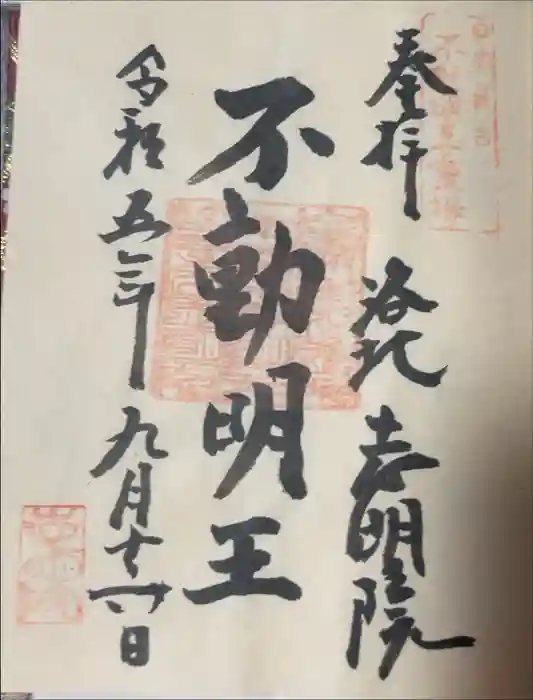 奉拝 洛北 志明院
不動明王
令和五年九月十六日